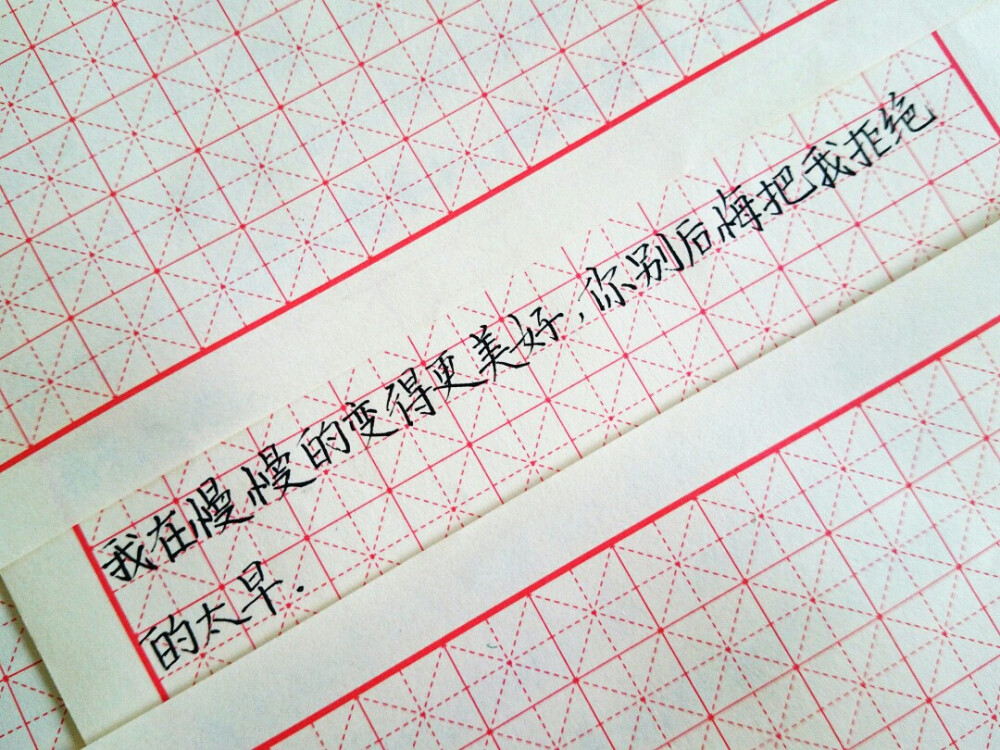 我在慢慢的变得更美好，你别后悔把我拒绝
的太早.